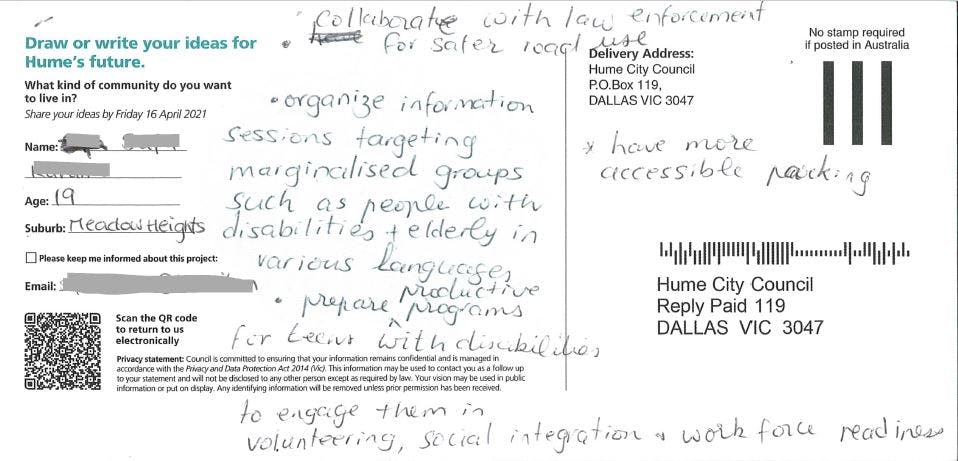 • Collaborate with law enforcement
for safer road use
Draw or write your ideas for
Hume's future.
What kind of community do you want
to live in?
Share your ideas by Friday 16 April 2021
Name:
Age: 19
Suburb: Meadow Heights
Please keep me informed about this project:
Email:
Scan the QR code
to return to us
electronically
• organize information
sessions targeting
marginalised groups
such as people with
disabilities + elderly in
various languages
• prepare productive programs
for teens with disabilities
Privacy statement: Council is committed to ensuring that your information remains confidential and is managed in
accordance with the Privacy and Data Protection Act 2014 (Vic). This information may be used to contact you as a follow up
to your statement and will not be disclosed to any other person except as required by law. Your vision may be used in public
information or put on display. Any identifying information will be removed unless prior permission has been received.
to engage them in
volunteering, social integration & work force readiness
Delivery Address:
Hume City Council
P.O.Box 119,
DALLAS VIC 3047
No stamp required
if posted in Australia
* have more
accessible parking
Hume City Council
Reply Paid 119
DALLAS VIC 3047